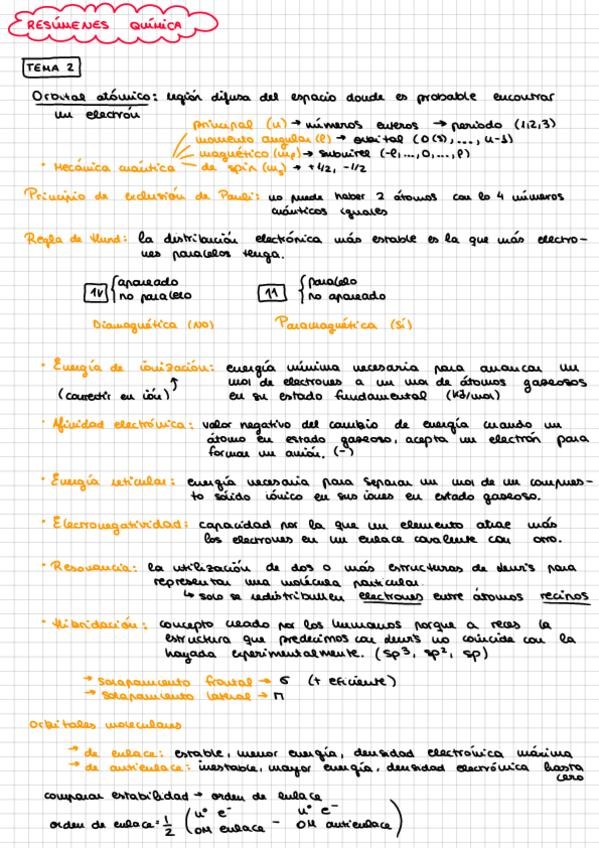 RESÚMENES QUÍMICA
TEMA 2
Orbital atómico: región difusa del espacio donde es probable encontrar
un electrón
principal (n) → números enteros → periodo (1,2,3)
momento angular (l) → orbital (0(s), ..., n-1)
magnético (ml) → subnivel (-l, ..., 0, ..., l)
• Mecánica cuántica — de spin (ms) → +1/2, -1/2
Principio de exclusión de Pauli: no puede haber 2 átomos con lo 4 números
cuánticos iguales
Regla de Hund: la distribución electrónica más estable es la que más electro-
nes paralelos tenga.
1↓ { apareado
no paralelo
11 { paralelo
no apareado
Diamagnética (NO) Paramagnética (Sí)
• Energía de ionización: energía mínima necesaria para arrancar un
(convertir en ión) ↑ mol de electrones a un mol de átomos gaseosos
en su estado fundamental (kJ/mol)
• Afinidad electrónica: valor negativo del cambio de energía cuando un
átomo en estado gaseoso, acepta un electrón para
formar un anión. (-)
• Energía reticular: energía necesaria para separar un mol de un compues-
to sólido iónico en sus iones en estado gaseoso.
• Electronegatividad: capacidad por la que un elemento atrae más
los electrones en un enlace covalente con otro.
• Resonancia: la utilización de dos o más estructuras de lewis para
representar una molécula particular.
↳ solo se redistribuyen electrones entre átomos vecinos
• Hibridación: concepto creado por los humanos porque a veces la
estructura que predecimos con lewis no coincide con la
hayada experimentalmente. (sp³, sp², sp)
→ solapamiento frontal → σ (+ eficiente)
→ solapamiento lateral → π
Orbitales moleculares
→ de enlace: estable, menor energía, densidad electrónica máxima
→ de antienlace: inestable, mayor energía, densidad electrónica hasta
cero
comparar estabilidad → orden de enlace
orden de enlace = 1/2 (nº e⁻ OM enlace - nº e⁻ OM antienlace)